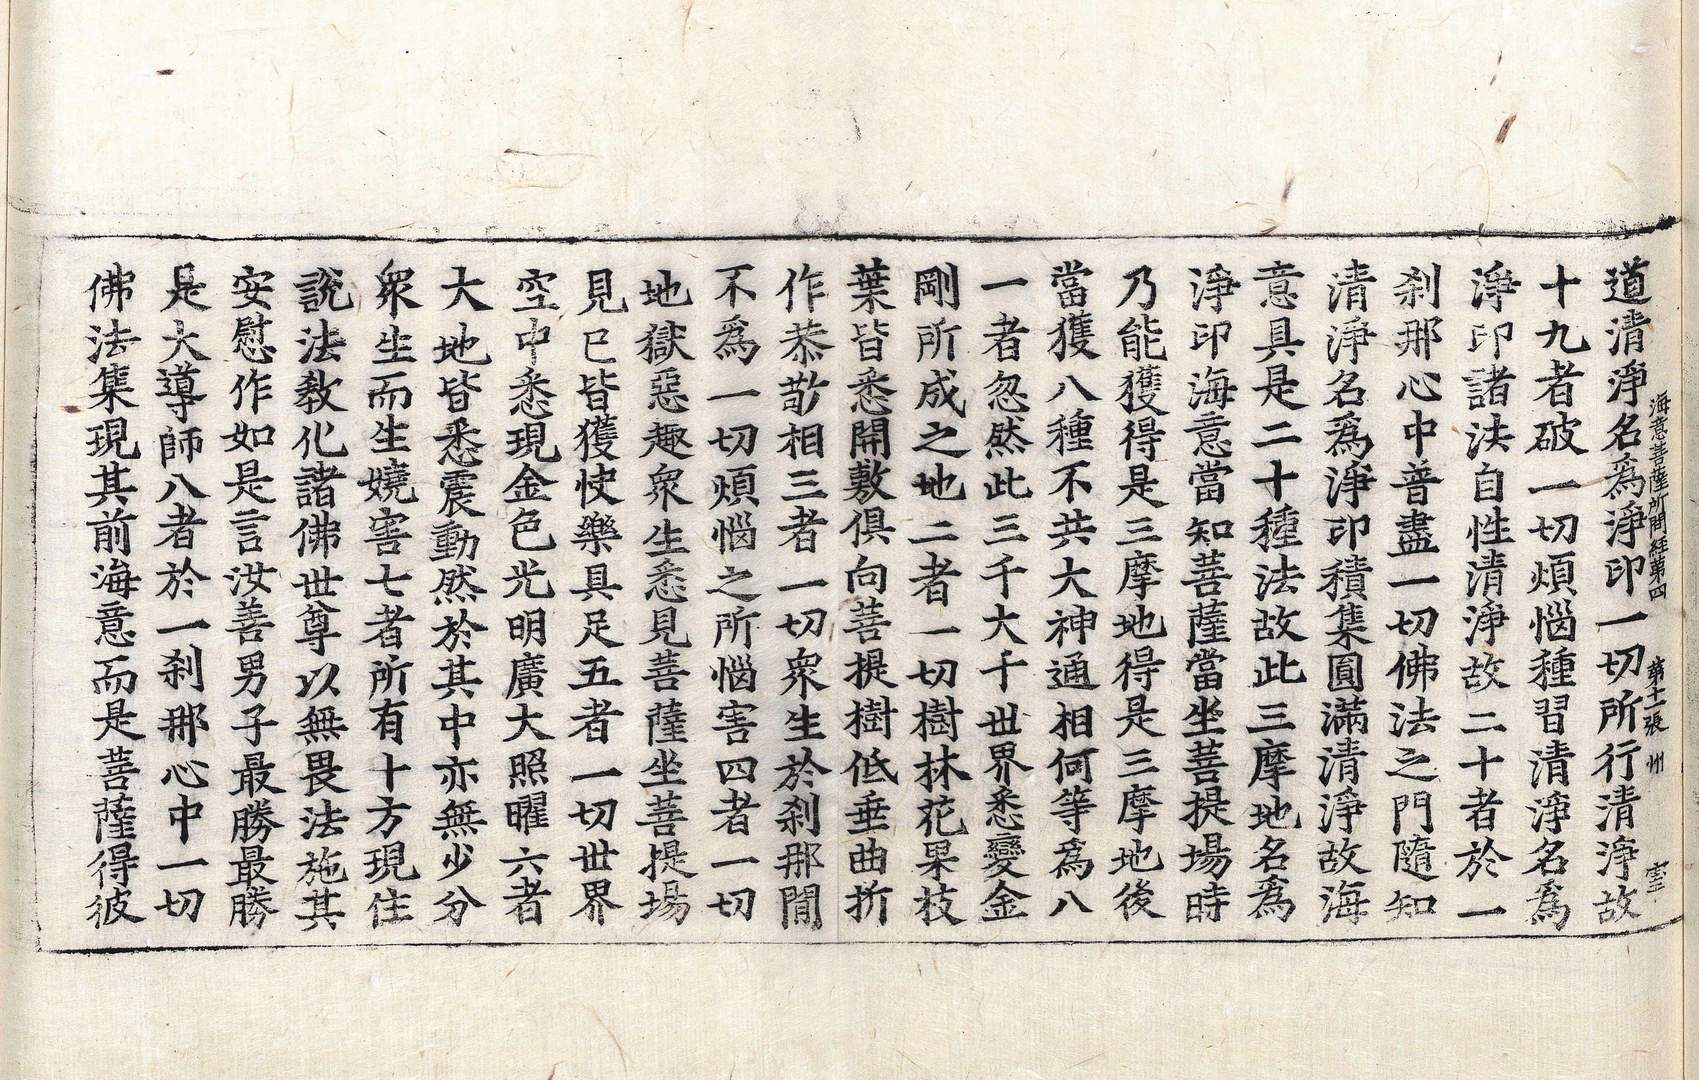 海意菩薩所問經第四　第十一張　州　雲
道清淨名爲淨印一切所行清淨故
十九者破一切煩惱種習清淨名爲
淨印諸法自性清淨故二十者於一
刹那心中普盡一切佛法之門隨知
清淨名爲淨印積集圓滿清淨故海
意具是二十種法故此三摩地名爲
淨印海意當知菩薩當坐菩提場時
乃能獲得是三摩地得是三摩地後
當獲八種不共大神通相何等爲八
一者忽然此三千大千世界悉變金
剛所成之地二者一切樹林花果枝
葉皆悉開敷俱向菩提樹低垂曲折
作恭敬相三者一切衆生於刹那間
不爲一切煩惱之所惱害四者一切
地獄惡趣衆生悉見菩薩坐菩提場
見已皆獲快樂具足五者一切世界
空中悉現金色光明廣大照曜六者
大地皆悉震動然於其中亦無少分
衆生而生嬈害七者所有十方現住
說法教化諸佛世尊以無畏法施其
安慰作如是言汝善男子最勝最勝
是大導師八者於一刹那心中一切
佛法集現其前海意而是菩薩得彼